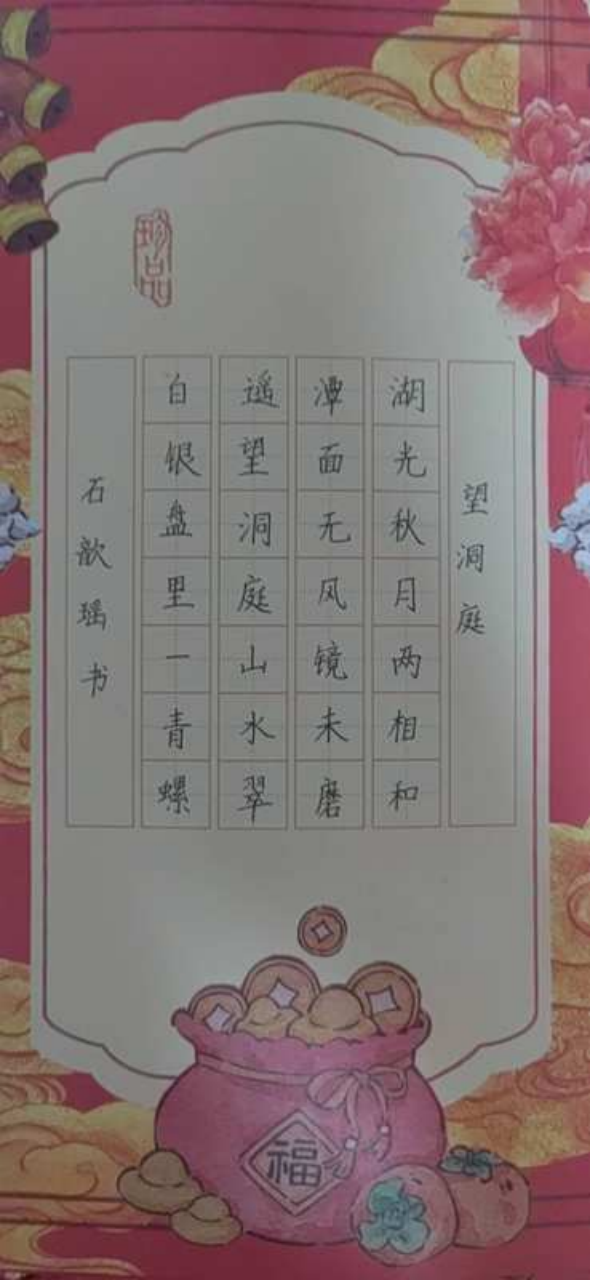 望洞庭
湖光秋月两相和
潭面无风镜未磨
遥望洞庭山水翠
白银盘里一青螺
石歆瑶书
珍品
福